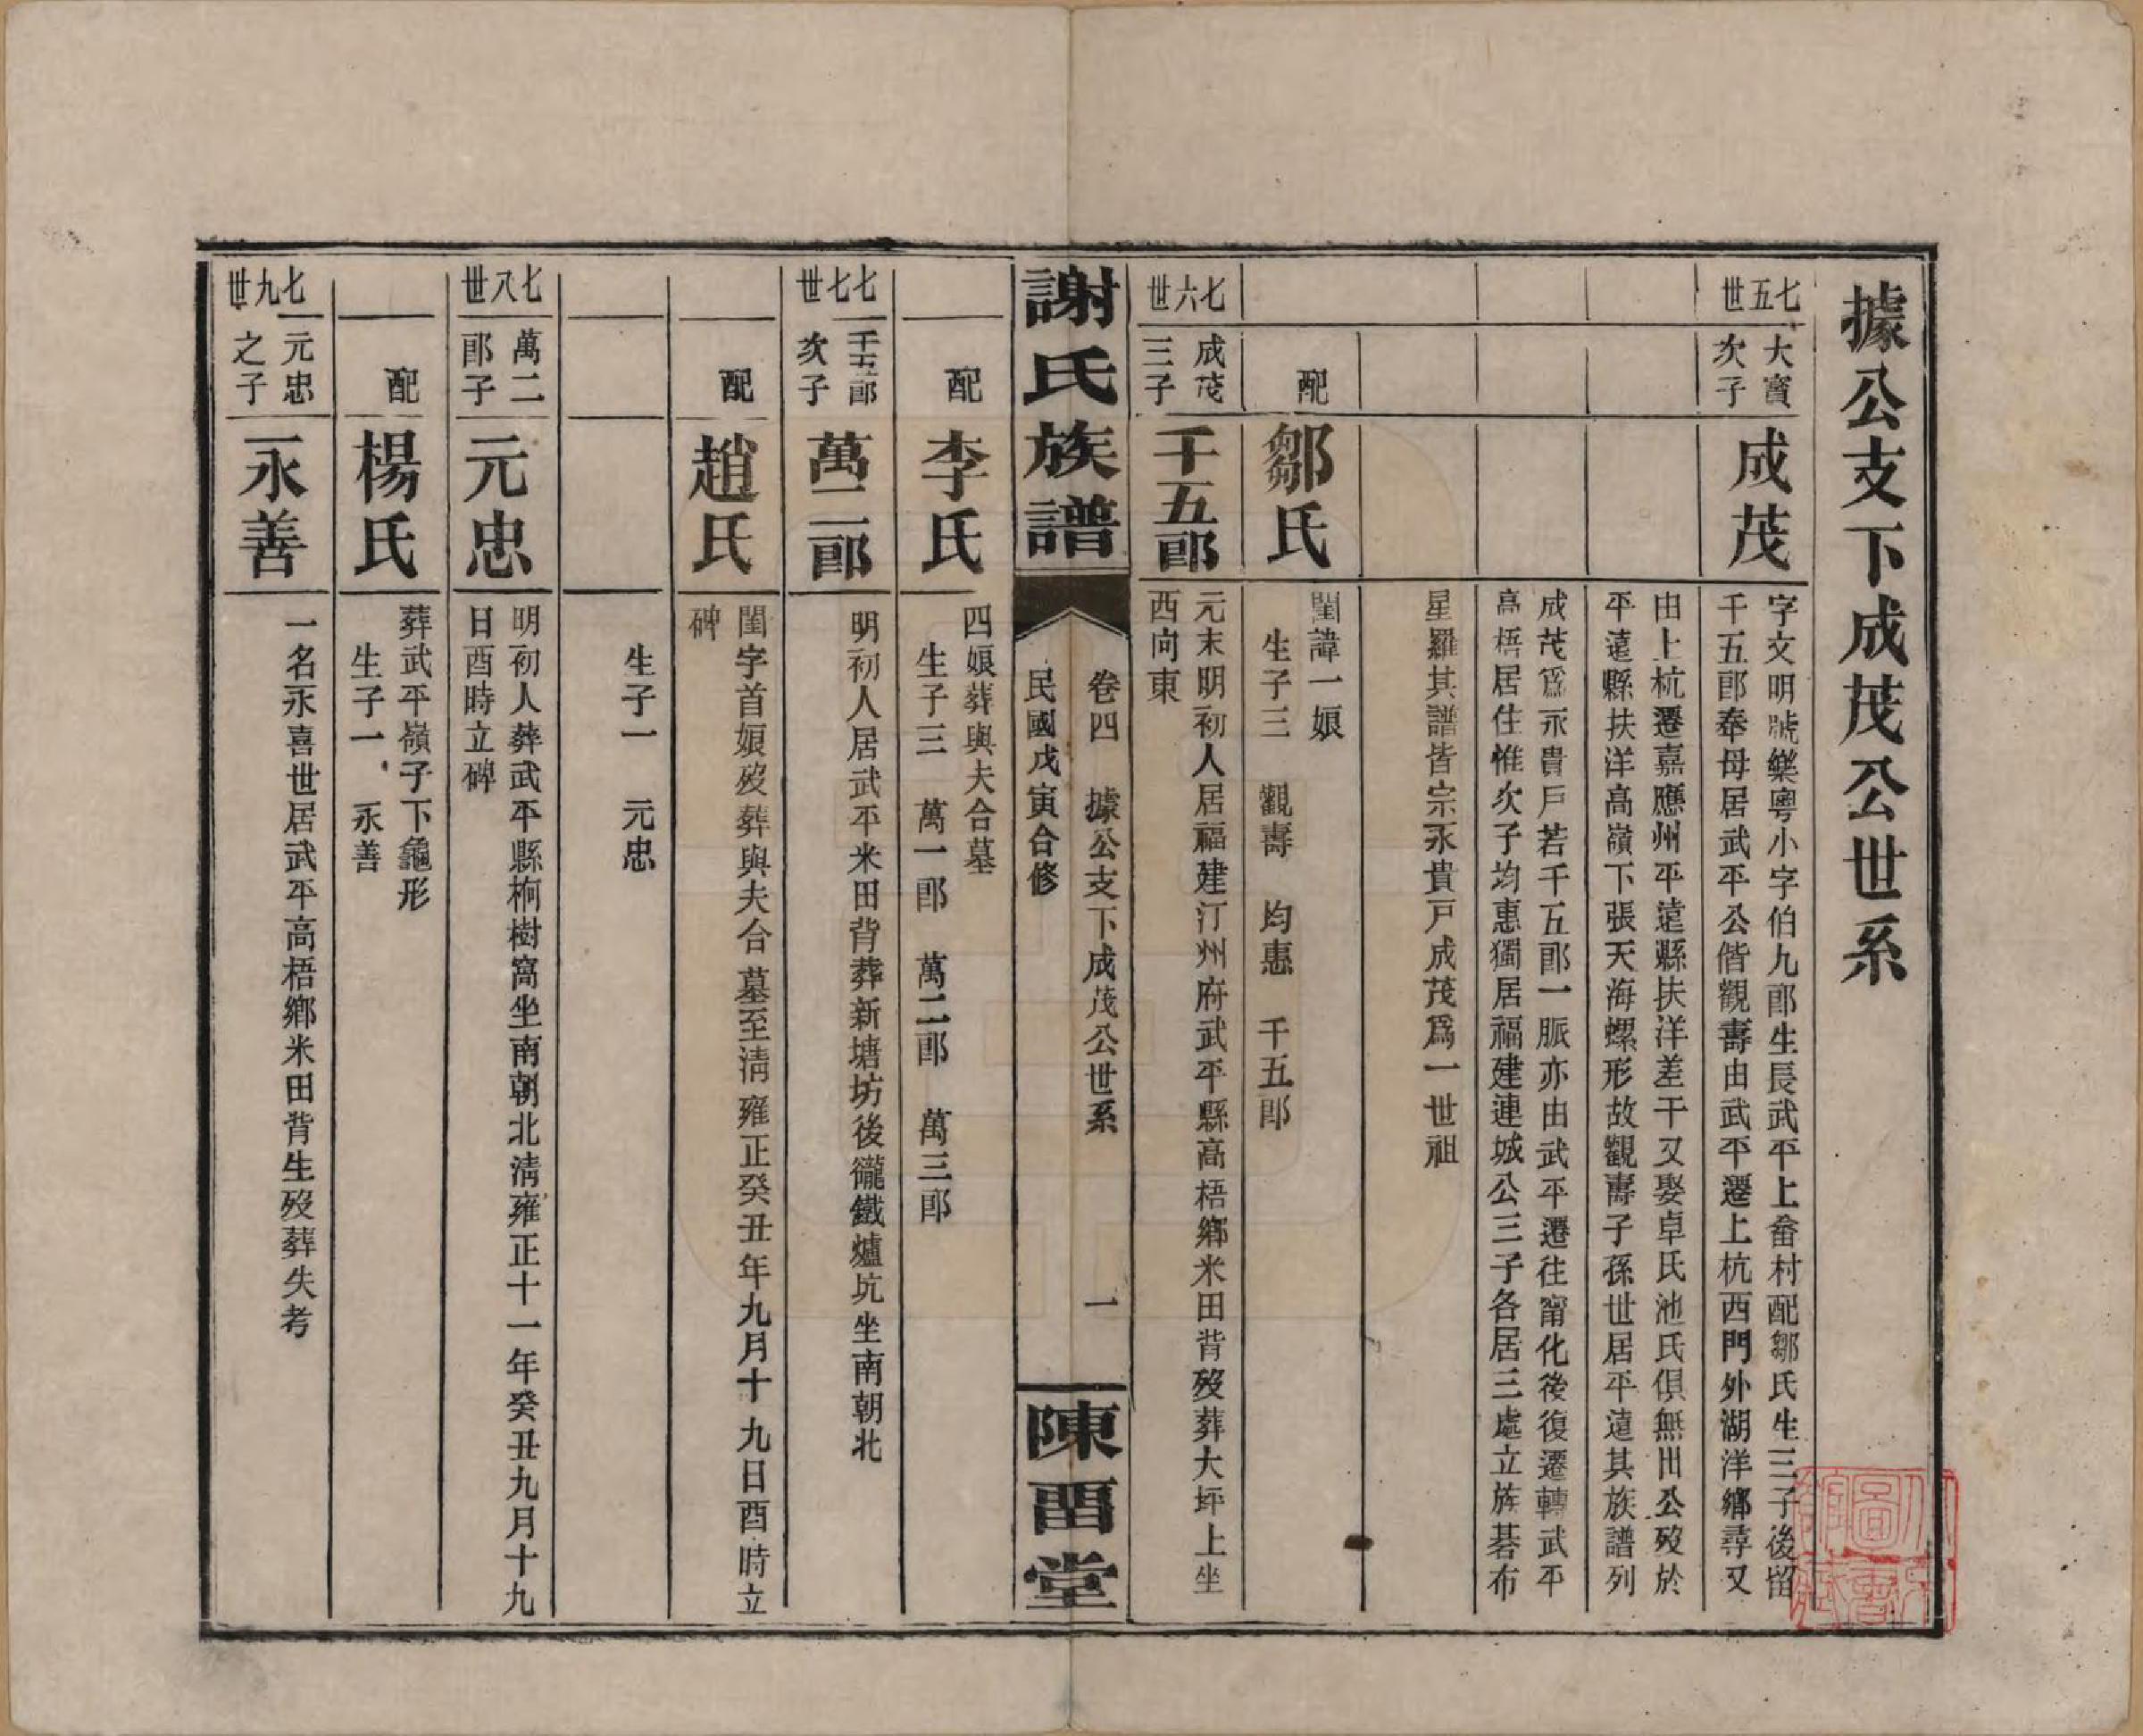 據公支下成茂公世系
七五世
大寳
次子
成茂
字文明號樂粵小字伯九郎生長武平上畬村配鄒氏生三子後留
千五郎奉母居武平公偕觀壽由武平遷上杭西門外湖洋鄉尋又
由上杭遷嘉應州平遠縣扶洋差干又娶卓氏池氏俱無出公歿於
平遠縣扶洋高嶺下張天海螺形故觀壽子孫世居平遠其族譜列
成茂爲永貴戶若千五郎一脈亦由武平遷往甯化後復遷轉武平
高梧居住惟次子均惠獨居福建連城公三子各居三處立族碁布
星羅其譜皆宗永貴戶成茂爲一世祖
配
鄒氏
閨諱一娘
生子三 觀壽 均惠 千五郎
七六世
成茂
三子
千五郎
元末明初人居福建汀州府武平縣高梧鄉米田背歿葬大坪上坐
西向東
謝氏族譜
卷四 據公支下成茂公世系 一
民國戊寅合修
陳畱堂
配
李氏
四娘葬與夫合墓
生子三 萬一郎 萬二郎 萬三郎
七七世
千五郎
次子
萬二郎
明初人居武平米田背葬新塘坊後𪨊鐵爐坑坐南朝北
配
趙氏
閨字首娘歿葬與夫合墓至清雍正癸丑年九月十九日酉時立
碑
生子一 元忠
七八世
萬二
郎子
元忠
明初人葬武平縣桐樹窩坐南朝北清雍正十一年癸丑九月十九
日酉時立碑
配
楊氏
葬武平嶺子下龜形
生子一 永善
七九世
元忠
之子
永善
一名永喜世居武平高梧鄉米田背生歿葬失考